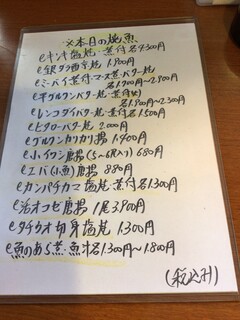 ※本日の焼魚
●キンキ塩焼・煮付各4300円
●銀ダラ西京焼 1,900円
●ミーバイ煮付・マース煮・バター焼
各1,900円〜2,900円
●赤グルクンバター焼・煮付
各1,900円〜2,300円
●レンコダイバター焼・煮付各1,500円
●ヒラローバター焼 2,000円
●グルクンカリカリ揚 1,400円
●小イワシ唐揚(5〜6尺入り)680円
●エバ(小魚)唐揚 880円
●カンパチカマ塩焼・煮付各1300円
●活オコゼ唐揚 1尾3,900円
●タチウオ切身塩焼 1,300円
●魚のあら煮・魚汁各1,300円〜1,800円
(税込み)